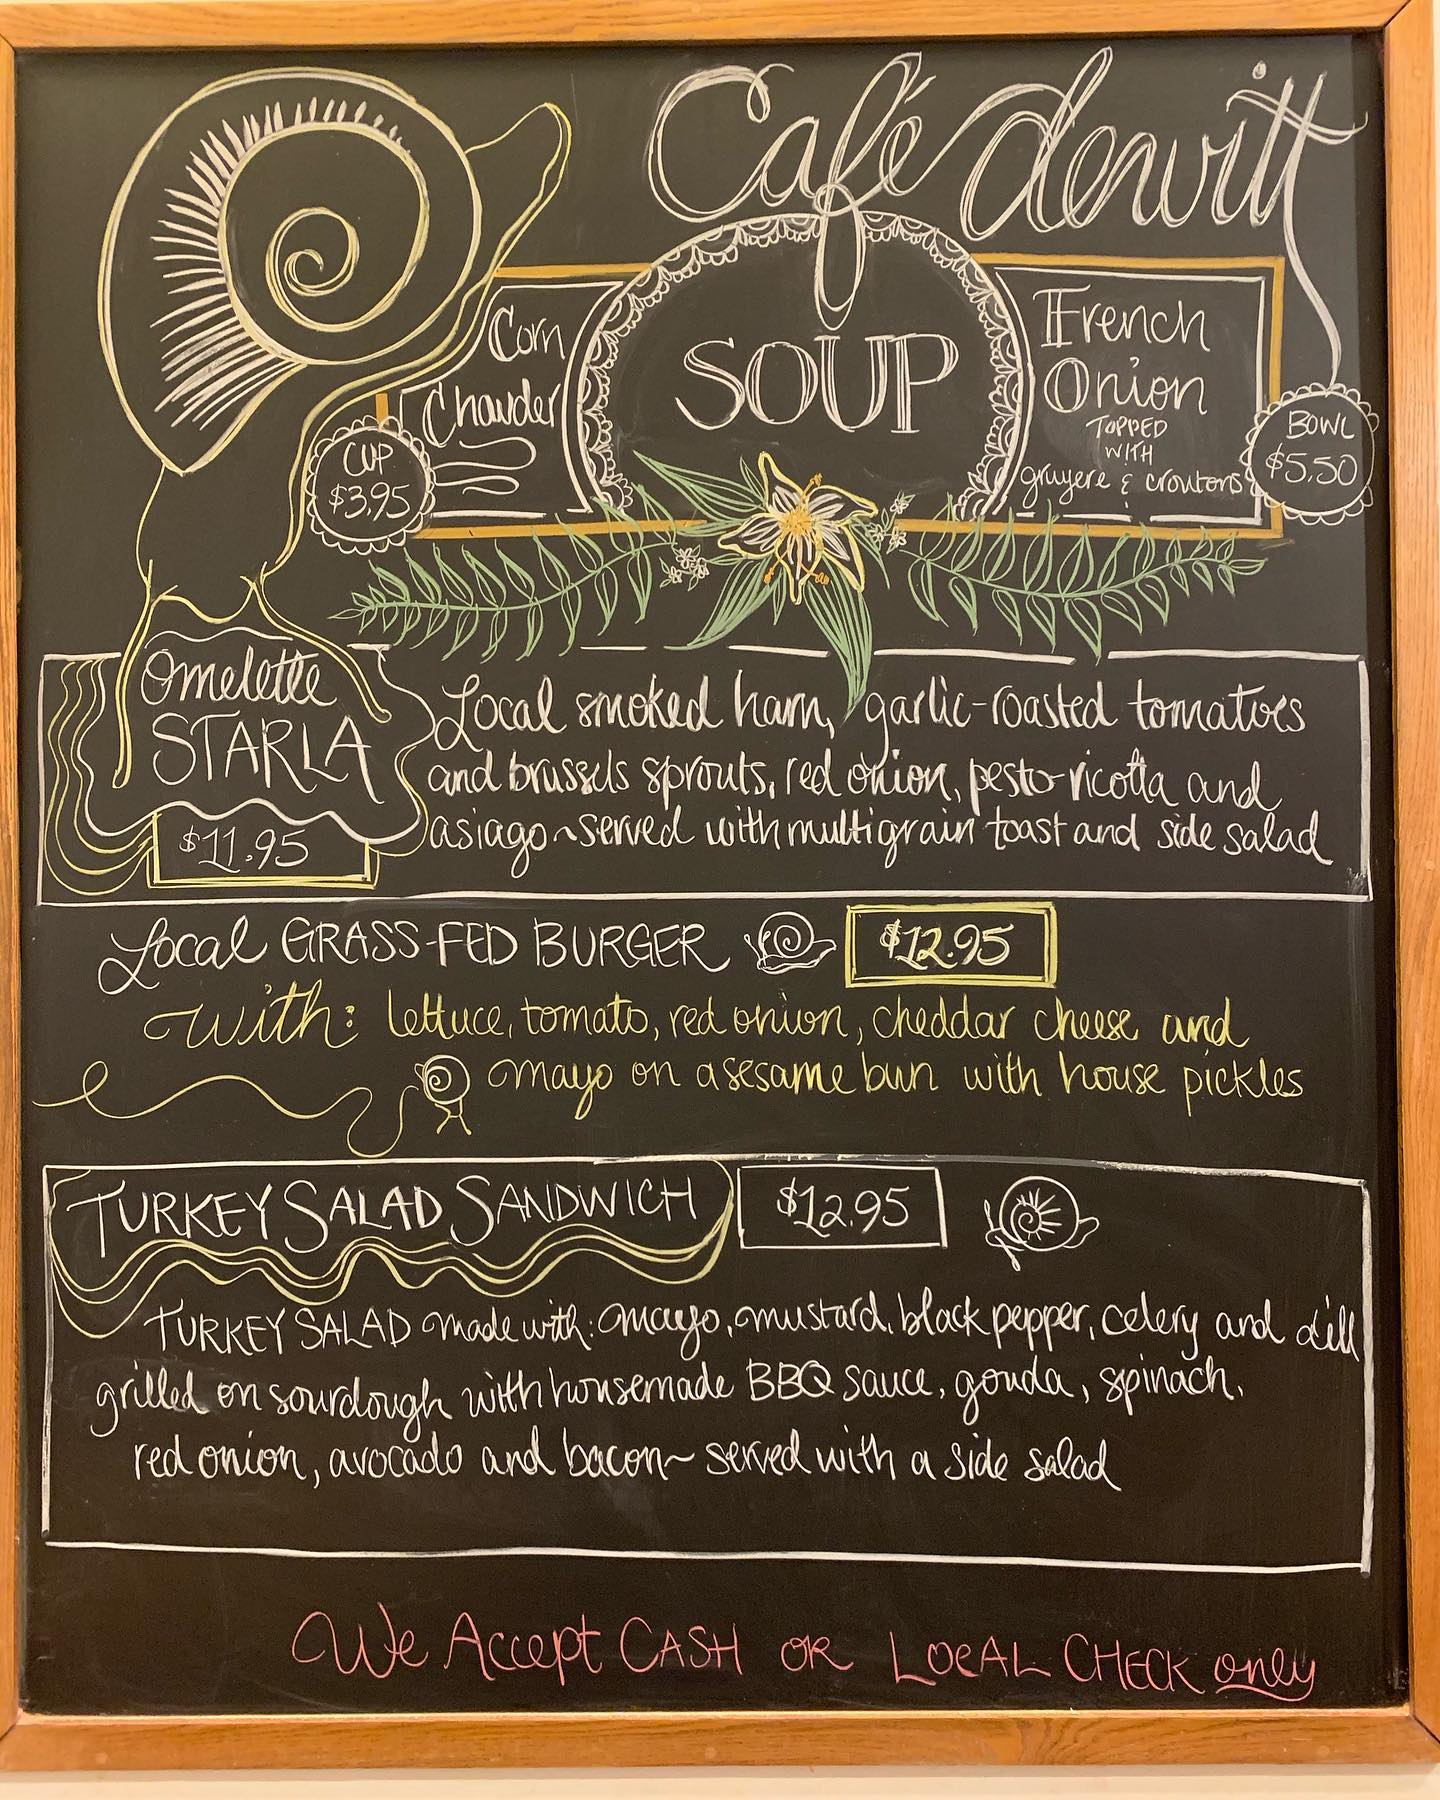 Café dewitt
SOUP
Corn
Chowder
CUP
$3.95
French
Onion
TOPPED
WITH
gruyere & croutons
BOWL
$5.50
Omelette
STARLA
$11.95
Local smoked ham, garlic-roasted tomatoes
and brussels sprouts, red onion, pesto-ricotta and
asiago~served with multigrain toast and side salad
Local GRASS-FED BURGER $12.95
with: lettuce, tomato, red onion, cheddar cheese and
mayo on a sesame bun with house pickles
TURKEY SALAD SANDWICH $12.95
TURKEY SALAD made with: mayo, mustard, black pepper, celery and dill
grilled on sourdough with housemade BBQ sauce, gouda, spinach,
red onion, avocado and bacon~ served with a side salad
We Accept CASH OR LOCAL CHECK only